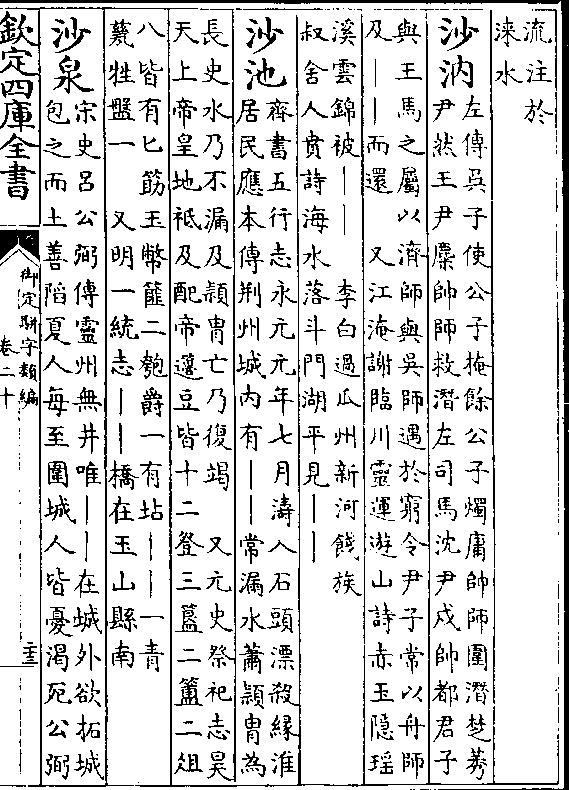 流注於
淶水
沙汭 左傳吳子使公子掩餘公子燭庸帥師圍潛楚莠
尹然王尹麇帥師救潛左司馬沈尹戍帥都君子
與王馬之屬以濟師與吳師遇於窮令尹子常以舟師
及——而還 又江淹謝臨川靈運遊山詩赤玉隠瑤
溪雲錦被—— 李白過瓜州新河餞族
叔舍人賁詩海水落斗門湖平見——
沙池 齊書五行志永元元年七月濤入石頭漂殺緣淮
居民應本傳荆州城内有——常漏水蕭頴胄為
長史水乃不漏及頴胄亡乃復竭 又元史祭祀志昊
天上帝皇地祇及配帝籩豆皆十二登三簠二簋二俎
八皆有匕筯玉幣篚二匏爵一有坫——一青
蔬牲盤一 又明一統志——橋在玉山縣南
沙泉 宋史呂公弼傳靈州無井唯——在城外欲拓城
包之而土善陷夏人每至圍城人皆憂渴死公弼
欽定四庫全書
御定騈字類編
卷二十
二十三